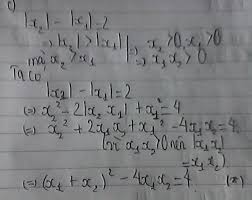 c)
|x₂| - |x₁| = 2
⇒ |x₂| > |x₁| | ⇒ x₂ > 0, x₁ > 0
mà x₂ > x₁ | ⇒ x₁x₂ > 0
Ta có
|x₂| - |x₁| = 2
⇔ x₂² - 2|x₂x₁| + x₁² = 4
⇔ x₂² + 2x₁x₂ + x₁² - 4x₁x₂ = 4
(vì x₁x₂ > 0 nên |x₁x₂|
= x₁x₂)
⇔ (x₁ + x₂)² - 4x₁x₂ = 4